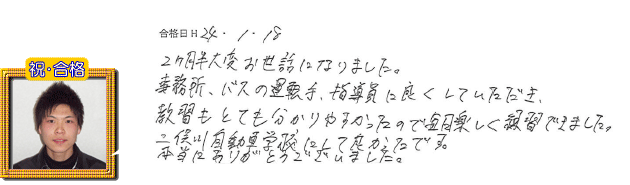 祝・合格
合格日H24.1.18
2ヶ月半大変お世話になりました。
事務所、バスの運転手、指導員に良くしていただき、
教習もとても分かりやすかったので毎日楽しく練習できました。
二俣川自動車学校にして良かったです。
本当にありがとうございました。